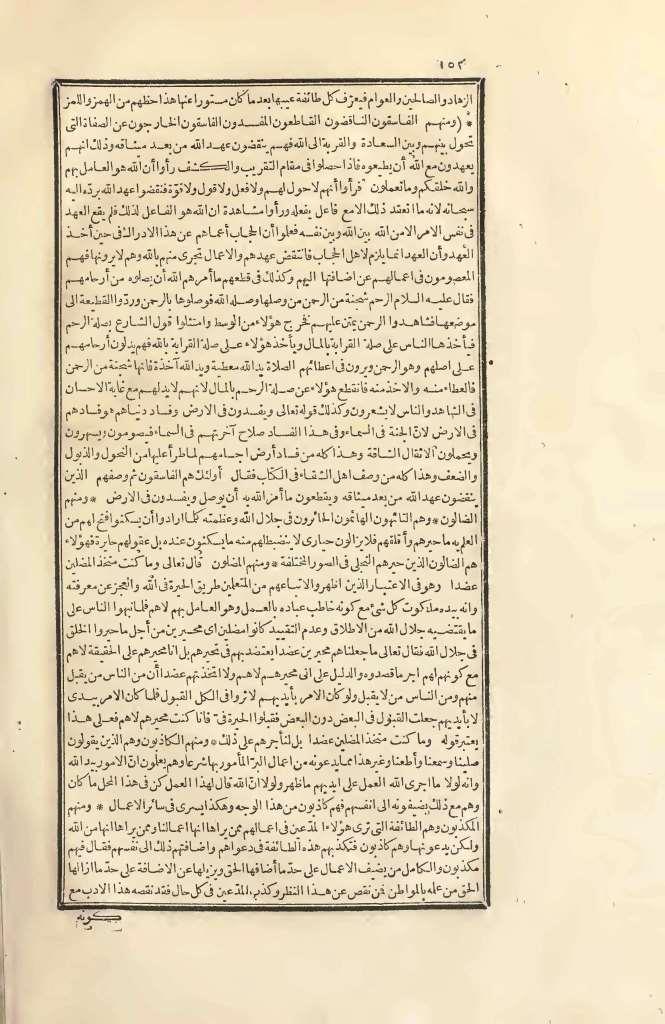 ١٥٢
الزهاد والصالحين والعوام فيعرف كل طائفة عيبها بعد ما كان مستورا عنها هذا حظهم من الهمز واللمز
* (ومنهم الفاسقون الناقضون القاطعون المفسدون الفاسقون الخارجون عن الصفاة التى
تحول بينهم وبين السعادة والقربة الى الله فهم ينقضون عهد الله من بعد ميثاقه وذلك انهم
يعهدون مع الله أن يطيعوه فاذا حصلوا فى مقام التقريب والكشف رأوا أن الله هو العامل بهم
والله خلقكم وما تعملون فرأوا أنهم لا حول لهم ولا فعل ولا قول ولا قوة فنقضوا عهد الله برده اليه
سبحانه لانه ما انعقد ذلك الا مع فاعل يفعله ورأوا مشاهدة ان الله هو الفاعل لذلك فلم يقع العهد
فى نفس الامر الا من الله بين الله وبين نفسه فعلوا أن الحجاب أعماهم عن هذا الادراك فى حين أخذ
العهد وأن العهد انما يلزم لاهل الحجاب فانتقض عهدهم والاعمال تجرى منهم بالله وهم لا يرونها فهم
المعصومون فى اعمالهم عن اضافتها اليهم وكذلك فى قطعهم ما أمرهم الله أن يصلوه من أرحامهم
فقال عليه السلام الرحم شجنة من الرحمن من وصلها وصله الله فوصلوها بالرحمن وردوا القطيعة الى
موضعها فشاهدوا الرحمن يمتن عليهم فخرج هؤلاء من الوسط وامتثلوا قول الشارع بصلة الرحم
فيأخذها الناس على صلة القرابة بالمال ويأخذ هؤلاء على صلة القرابة بالله فهم يدلون أرحامهم
على اصلهم وهو الرحمن ويرون فى اعطائهم الصلاة يد الله معطية ويد الله آخذة فانها شجنة من الرحمن
فالعطاء منه والاخذ منه فانقطع هؤلاء عن صلة الرحم بالمال لانهم لا يدلهم مع غاية الاحسان
فى الشاهد والناس لا يشعرون وكذلك قوله تعالى ويفسدون فى الارض وفساد دنياهم * وفسادهم
فى الارض لان الجنة فى السماء وفى هذا الفساد صلاح آخرتهم فى السماء فيصومون ويسهرون
ويحملون الاثقال الشاقة وهذا كله من فساد أرض اجسامهم لما طرأ عليها من النحول والذبول
والضعف وهذا كله من وصف اهل الشقاء فى الكتاب فقال أولئك هم الفاسقون ثم وصفهم الذين
ينقضون عهد الله من بعد ميثاقه ويقطعون ما أمر الله به أن يوصل ويفسدون فى الارض * ومنهم
الضالون * وهم التائهون الهائمون الحائرون فى جلال الله وعظمته كلما ارادوا أن يسكنوا فتح لهم من
العلم به ما حيرهم وأقلقهم فلا يزالون حيارى لا ينضبط لهم منه ما يسكنون عنده بل عقولهم حايرة فهؤلاء
هم الضالون الذين حيرهم التجلى فى الصور المختلفة * ومنهم المضلون قال تعالى وما كنت متخذ المضلين
عضدا وهو فى الاعتبار الذين اظهروا لاتباعهم من المتعلمين طريق الحيرة فى الله والعجز عن معرفته
وانه بيده ملكوت كل شئ مع كونه خاطب عباده بالعمل وهو العامل بهم لاهم فلما نبهوا الناس على
ما يقتضيه جلال الله من الاطلاق وعدم التقييد كانوا مضلين اى محيرين من أجل ما حيروا الخلق
فى جلال الله فقال تعالى ما جعلناهم محيرين عضدا يعتضد بهم فى تحيرهم بل انا محيرهم على الحقيقة لاهم
مع كونهم لهم اجر ما قصدوه والدليل على انى محيرهم لاهم ولا اتخذتهم عضدا أن من الناس من يقبل
منهم ومن الناس من لا يقبل ولو كان الامر بأيديهم لاثروا فى الكل القبول فلما كان الامر بيدى
لا بأيديهم جعلت القبول فى البعض دون البعض فقبلوا الحيرة فىّ فانا كنت محيرهم لاهم فعلى هذا
يعتبر قوله وما كنت متخذ المضلين عضدا بل لنأجرهم على ذلك * ومنهم الكاذبون وهم الذين يقولون
صلينا وسمعنا وأطعنا وغير هذا مما يدعونه من اعمال البر المأمور بها شرعا وهم يعلمون ان الامور بيد الله
وانه لولا ما اجرى الله العمل على ايديهم ما ظهر ولولا ان الله قال لهذا العمل كن فى هذا المحل ما كان
وهم مع ذلك يضيفونه الى انفسهم فهم كاذبون من هذا الوجه وهكذا يسرى فى سائر الاعمال * ومنهم
المكذبون وهم الطائفة التى ترى هؤلاء المدعين فى اعمالهم ممن يراها انها اعمالنا وممن يراها انها من الله
ولكن يدعونها وهم كاذبون فتكذبهم هذه الطائفة فى دعواهم واضافتهم ذلك الى نفسهم فقال فيهم
مكذبون والكامل من يضيف الاعمال على حد ما أضافها الحق ويزيلها عن الاضافة على حد ما ازالها
الحق من عمله بالمواطن فمن نقص عن هذا النظر وكذب المدعين فى كل حال فقد نقصه هذا الادب مع
كونه